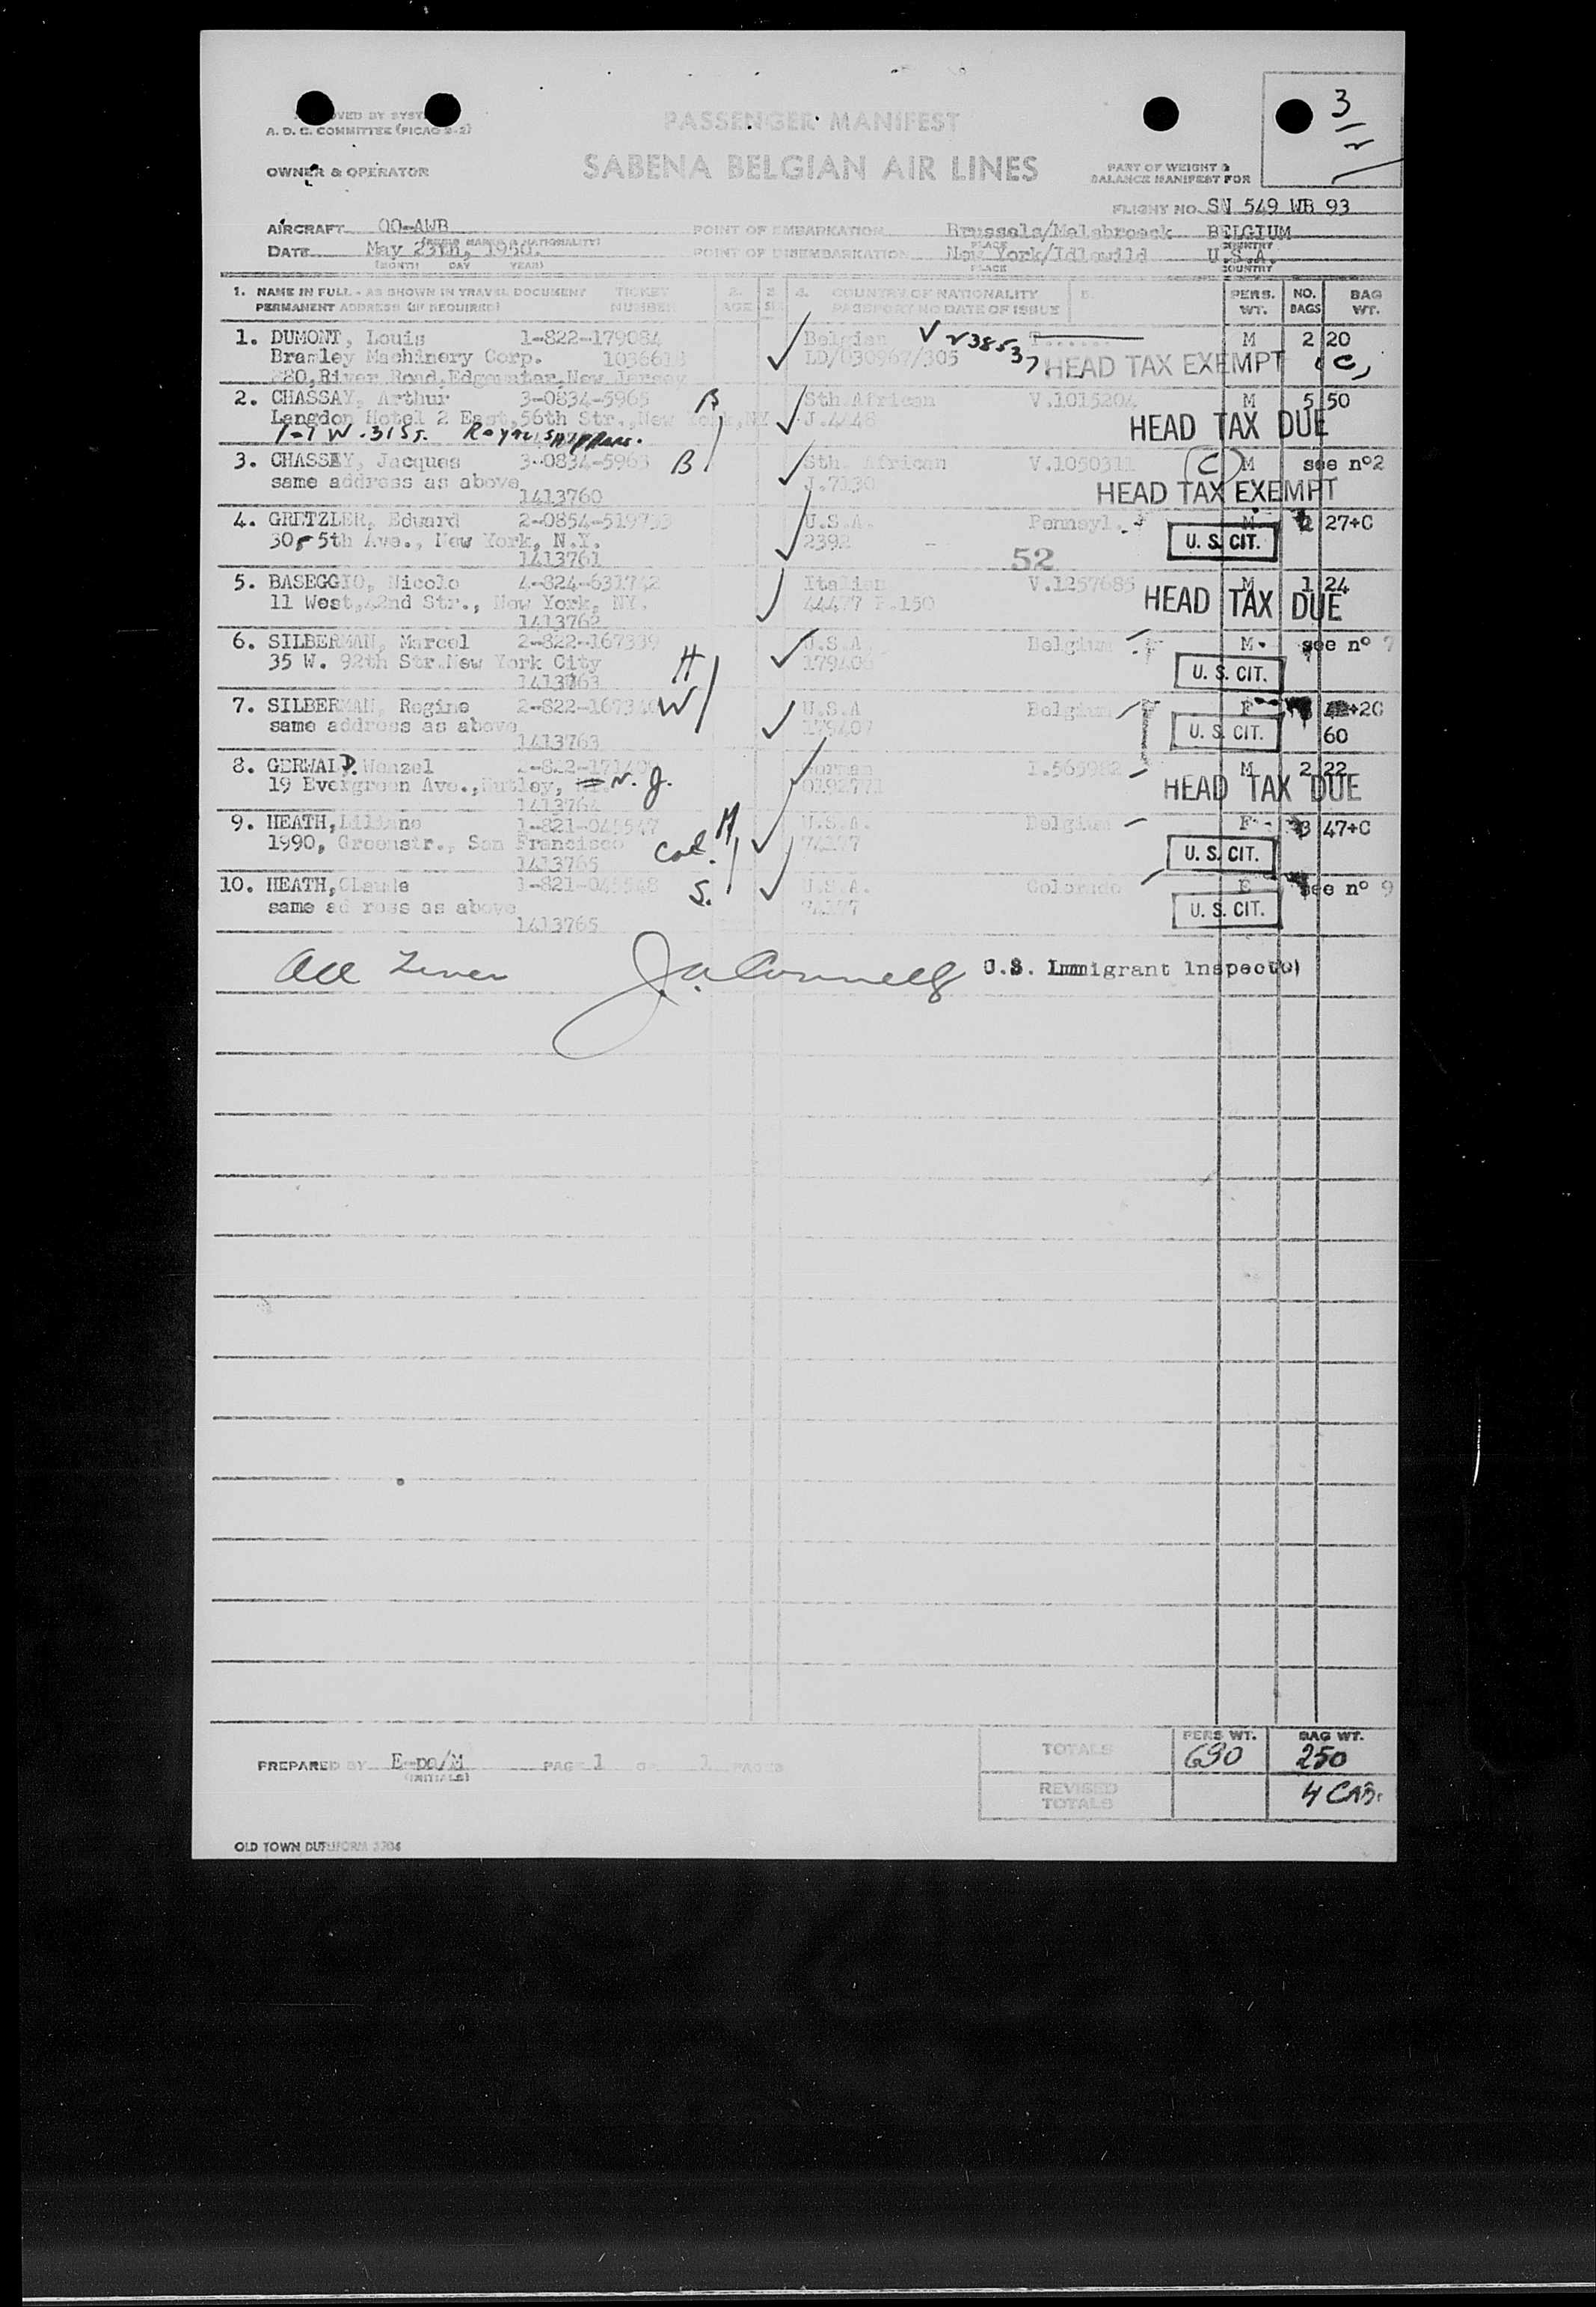 PASSENGER MANIFEST
A. D. C. COMMITTEE (PICAO 8-2)
SABENA BELGIAN AIR LINES
OWNER & OPERATOR
PART OF WEIGHT &
BALANCE MANIFEST FOR
3
FLIGHT NO. SN 549 WB 93
AIRCRAFT OO-AWB
POINT OF EMBARKATION Brussels/Melsbroeck BELGIUM
DATE May 25th, 1950.
(MONTH DAY YEAR)
POINT OF DISEMBARKATION New York/Idlewild U.S.A.
PLACE COUNTRY
1. NAME IN FULL - AS SHOWN IN TRAVEL DOCUMENT TICKET 2. 3. 4. COUNTRY OF NATIONALITY 5. PERS. NO. BAG
PERMANENT ADDRESS (IF REQUIRED) NUMBER AGE SEX PASSPORT NO DATE OF ISSUE WT. BAGS WT.
1. DUMONT, Louis 1-822-179084 Belgian M 2 20
Bramley Machinery Corp. 1036618 LD/030967/305 HEAD TAX EXEMPT
880, River Road, Edgewater, New Jersey
2. CHASSAY, Arthur 3-0834-5965 B Sth African V.1015204 M 5 50
Langdon Hotel 2 East, 56th Str., New York, NY J.4448 HEAD TAX DUE
3. CHASSAY, Jacques 3-0834-5963 B Sth. African V.1050311 (C) M see nº2
same address as above J.7130 HEAD TAX EXEMPT
1413760
4. GRETZLER, Edward U.S.A. Pennsyl. M 2 27+C
5th Ave., New York, N.Y. 2392 U. S. CIT.
1413761 52
5. BASEGGIO, Nicolo 4-824-631742 Italian V.1257685 M 1 24
11 West, 42nd Str., New York, NY. 44477 P.150 HEAD TAX DUE
1413762
6. SILBERMAN, Marcel 2-822-167339 U.S.A. Belgium M see nº 7
35 W. 92th Str. New York City H 179406 U. S. CIT.
1413763
7. SILBERMAN, Regine 2-822-167340 W U.S.A Belgium F +2C
same address as above 179407 U. S. CIT. 60
1413763
8. GERWALD. Wenzel German I.565982 M 2 22
19 Evergreen Ave., Nutley, N. J. HEAD TAX DUE
1413764
9. HEATH, Liliane 1-821-045547 H U.S.A. Belgium F 3 47+C
1990, Greenstr., San Francisco Cal. U. S. CIT.
1413765
10. HEATH, Claude 1-821-045548 S. U.S.A. Colorado see nº 9
same ad ress as above U. S. CIT.
1413765
U.S. Immigrant Inspector
PREPARED BY E-pa/M PAGE 1 OF 1 PAGES
(INITIALS)
PERS WT. BAG WT.
TOTALS 690 250
REVISED TOTALS 4 CAB.
OLD TOWN DUPLIFORM